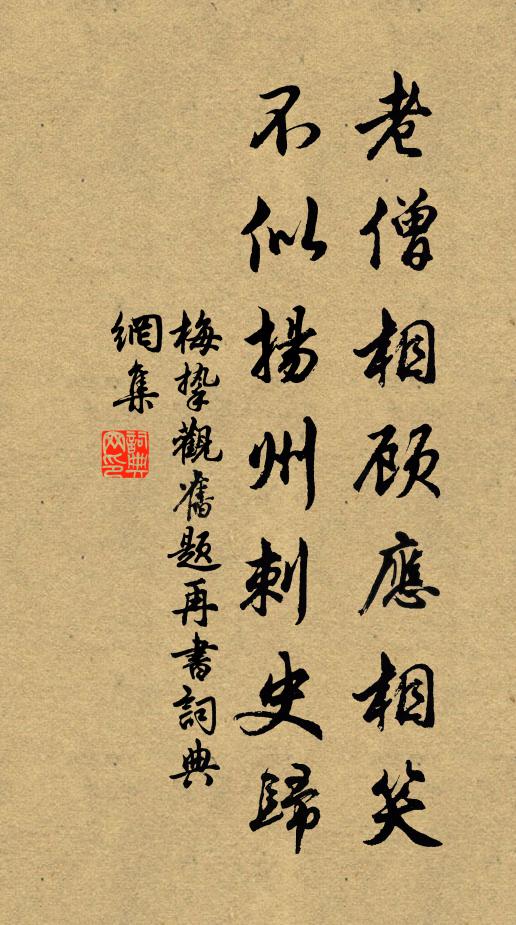 老僧相顾應相笑
不似揚州刺史歸
梅挚觀舊題再書詞典
網集
詞典
网印